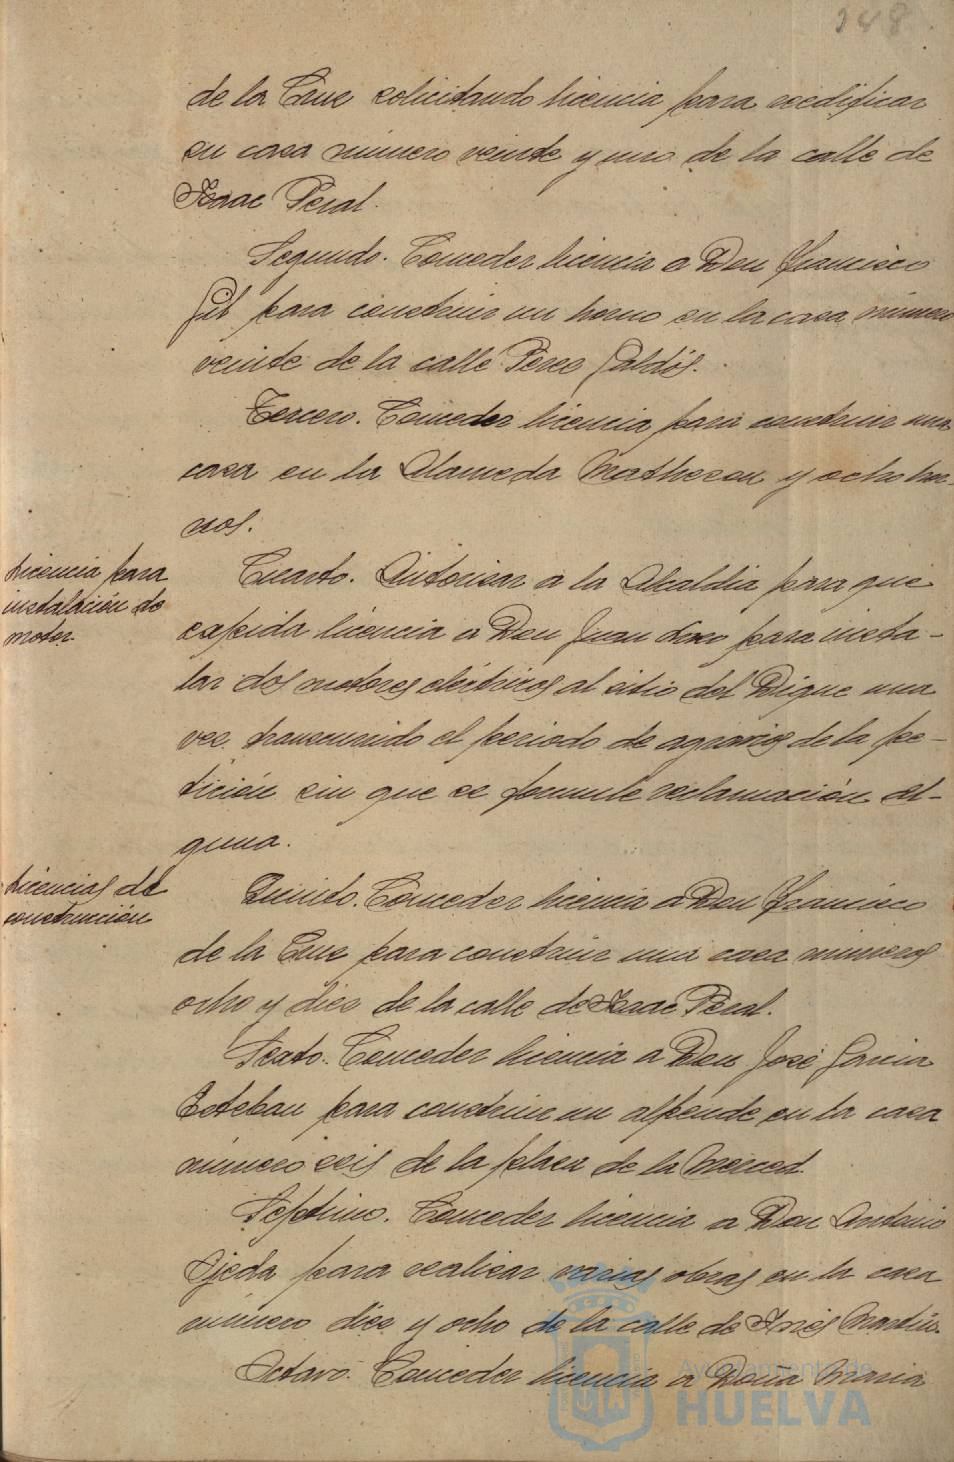 148
de la Cruz solicitando licencia para reedificar
su casa número veinte y uno de la calle de
Isaac Peral.
Segundo. Conceder licencia a Don Francisco
Gil para construir un horno en la casa número
veinte de la calle Pérez Galdós.
Tercero. Conceder licencia para construir una
casa en la Alameda Matheson y ocho hor-
nos.
Licencia para
instalación de
motor
Cuarto. Autorizar a la Alcaldía para que
expida licencia a Don Juan para insta-
lar dos motores eléctricos al sitio del Dique una
vez transcurrido el periodo de agravios de la pe-
tición sin que se formule reclamación al-
guna.
Licencias de
construcción
Quinto. Conceder licencia a Don Francisco
de la Cruz para construir una casa números
ocho y diez de la calle de Isaac Peral.
Sexto. Conceder licencia a Don José García
Esteban para construir un alpende en la casa
número seis de la plaza de la Merced.
Séptimo. Conceder licencia a Don Antonio
Ojeda para realizar varias obras en la casa
número diez y ocho de la calle de Inés Martín.
Octavo. Conceder licencia a Doña Maria
Ayuntamiento de
HUELVA